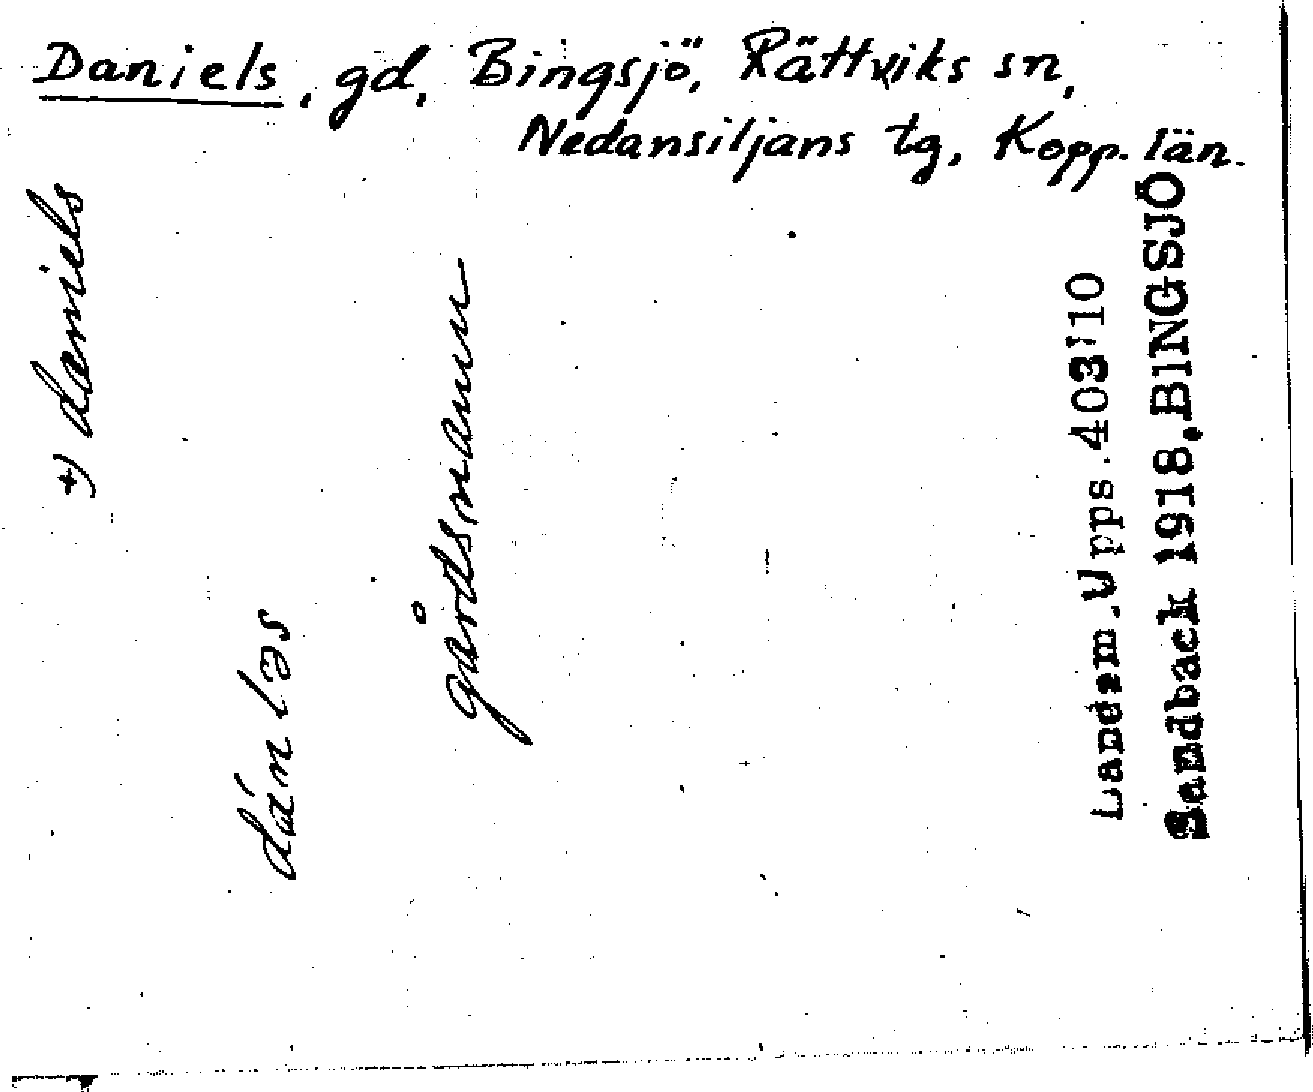 Daniels, gd, Bingsjö, Rättviks sn,
Nedansiljans tg, Kopp. län.
+) daniels
dánləs
gårdsnamn
Landsm. Upps. 403:10
Sandback 1918. BINGSJÖ